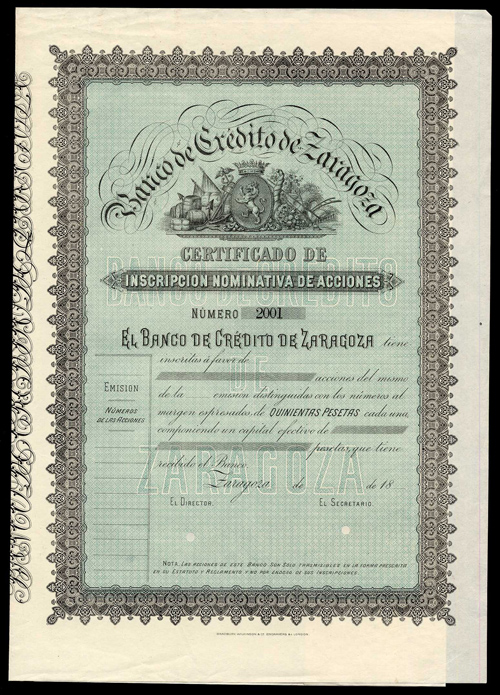 Banco de Crédito de Zaragoza
CERTIFICADO DE
INSCRIPCION NOMINATIVA DE ACCIONES
NÚMERO 2001
EL BANCO DE CRÉDITO DE ZARAGOZA tiene
inscritas á favor de
acciones del mismo
de la emision distinguidas con los números al
margen espresados de QUINIENTAS PESETAS cada una,
componiendo un capital efectivo de
pesetas, que tiene
recibido el Banco.
Zaragoza de de 18
EL DIRECTOR. EL SECRETARIO.
EMISION
NÚMEROS
DE LAS ACCIONES
BANCO DE CREDITO
DE
ZARAGOZA
NOTA. LAS ACCIONES DE ESTE BANCO SON SOLO TRASMISIBLES EN LA FORMA PRESCRITA
EN SU ESTATUTO Y REGLAMENTO Y NO POR ENDOSO DE SUS INSCRIPCIONES.